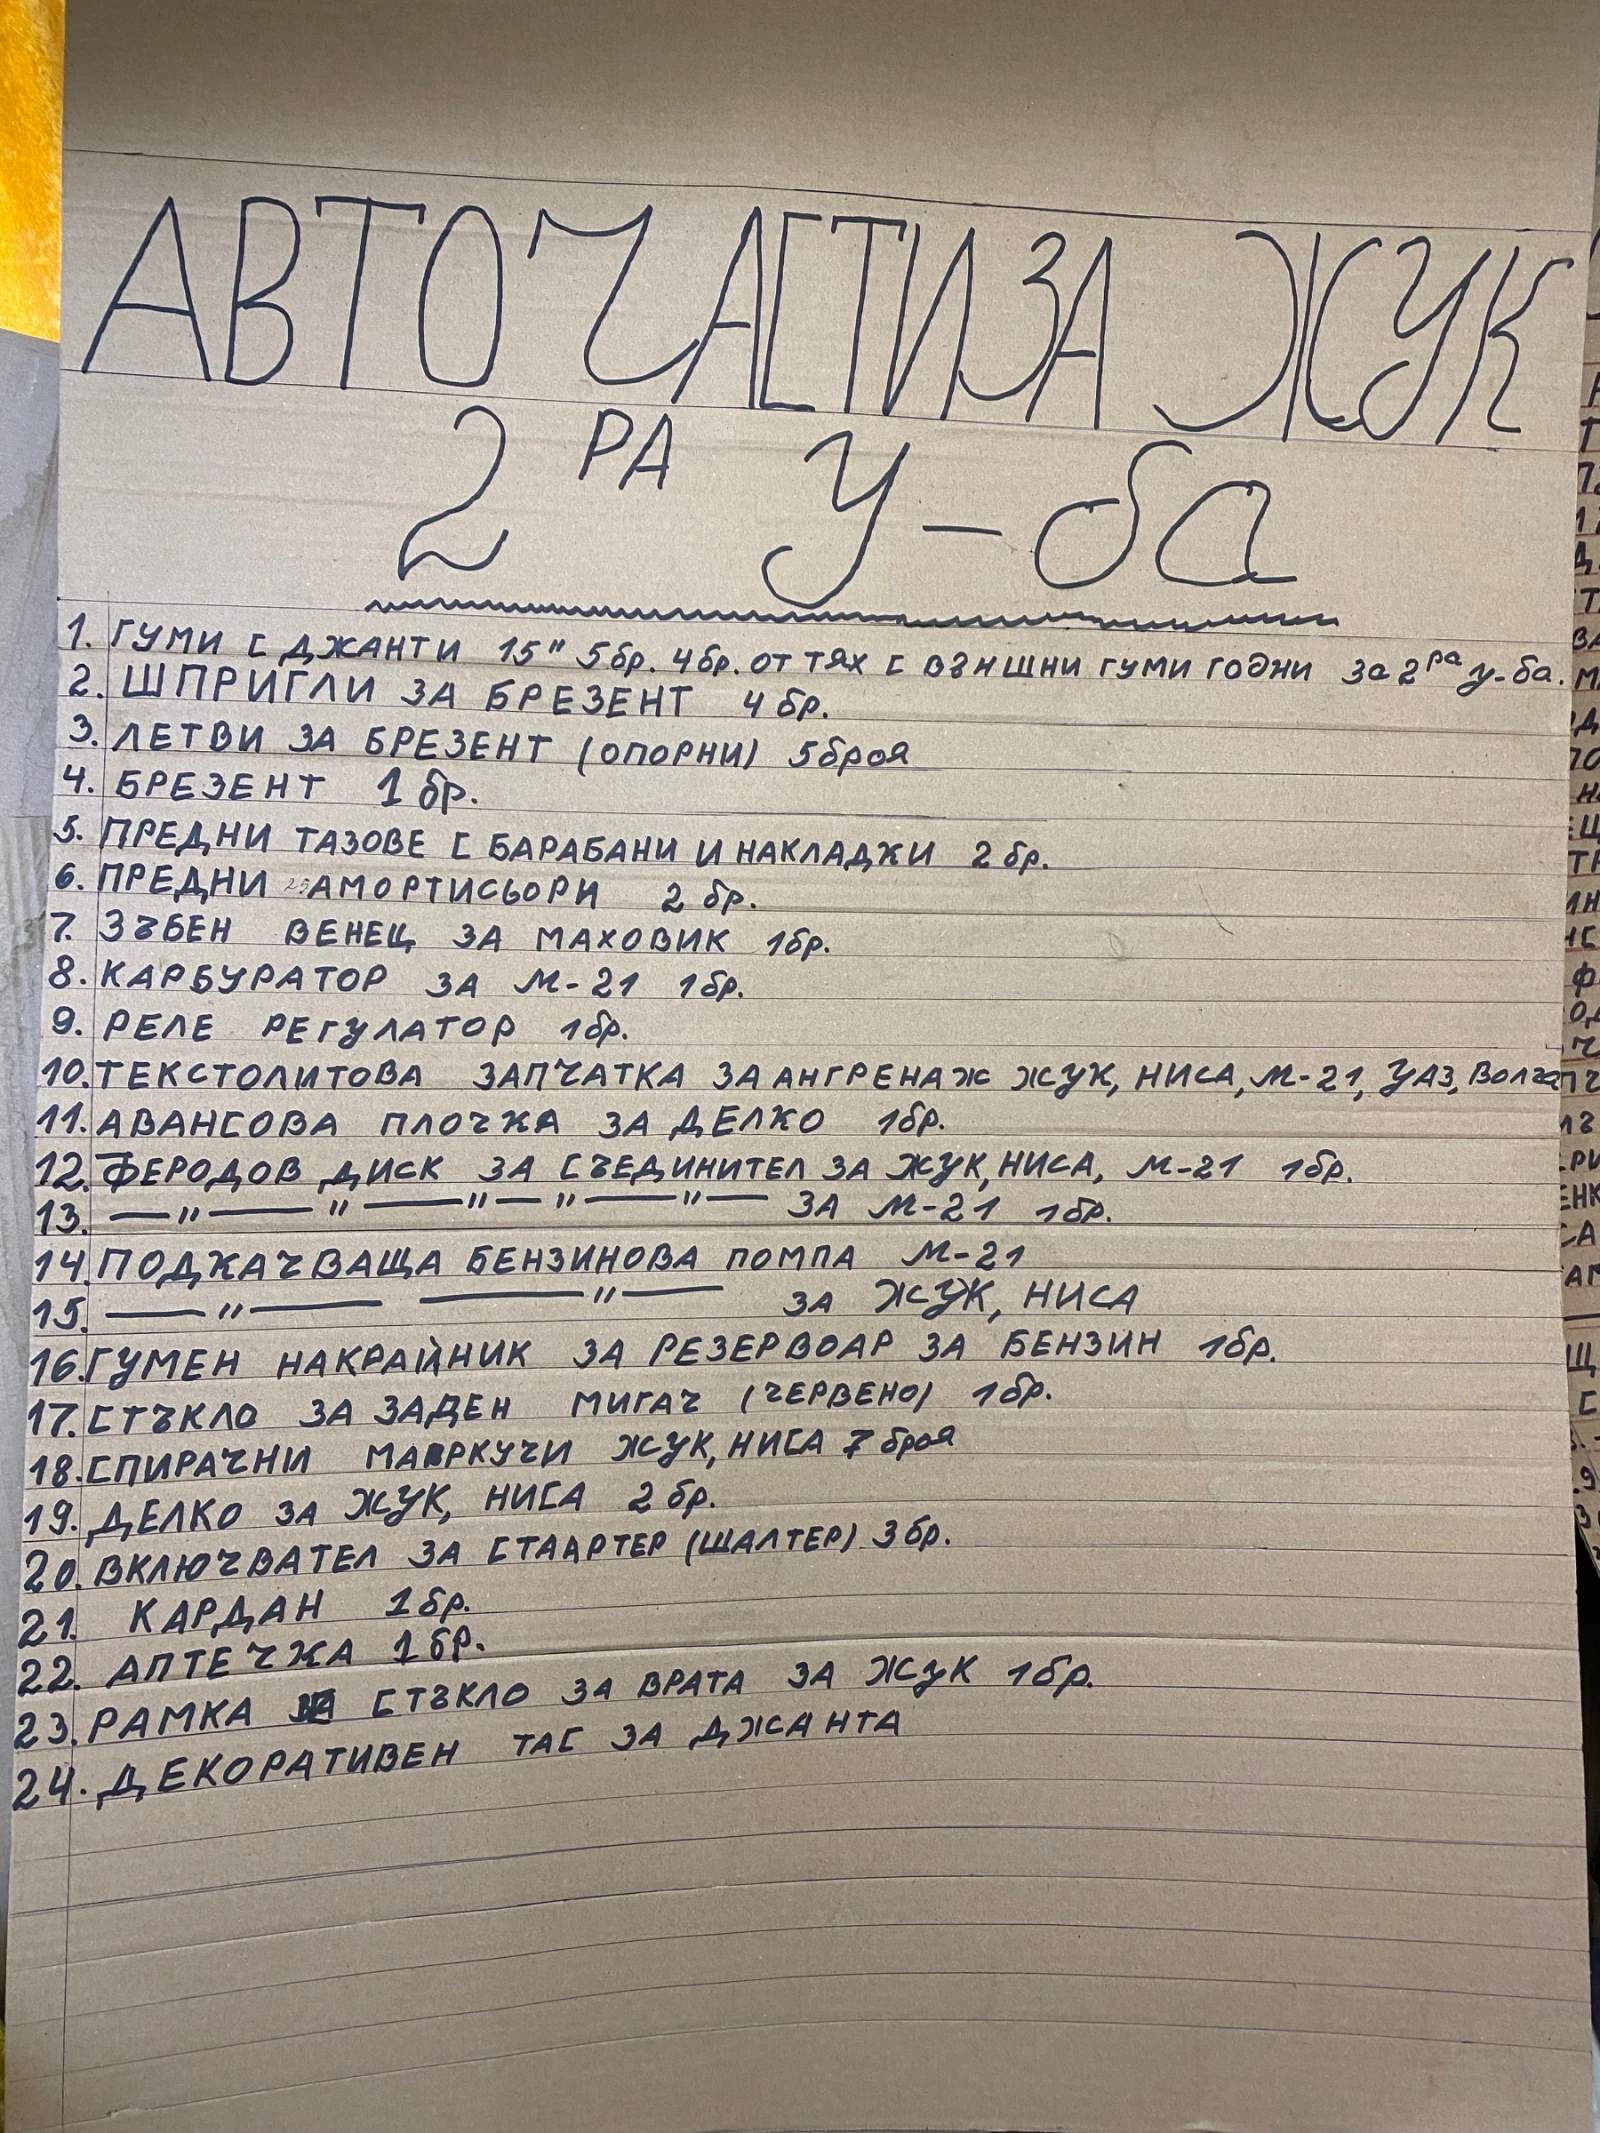 АВТОЧАСТИ ЗА ЖУК
2РА У-ба
1. ГУМИ С ДЖАНТИ 15" 5бр. 4бр. ОТ ТЯХ С ВЪНШНИ ГУМИ ГОДНИ ЗА 2ра у-ба.
2. ШПРИГЛИ ЗА БРЕЗЕНТ 4 бр.
3. ЛЕТВИ ЗА БРЕЗЕНТ (ОПОРНИ) 5 броя
4. БРЕЗЕНТ 1 бр.
5. ПРЕДНИ ТАЗОВЕ С БАРАБАНИ И НАКЛАДЖИ 2 бр.
6. ПРЕДНИ АМОРТИСЬОРИ 2 бр.
7. ЗЪБЕН ВЕНЕЦ ЗА МАХОВИК 1бр.
8. КАРБУРАТОР ЗА М-21 1бр.
9. РЕЛЕ РЕГУЛАТОР 1бр.
10. ТЕКСТОЛИТОВА ЗАПЧАТКА ЗА АНГРЕНАЖ ЖУК, НИСА, М-21, УАЗ, Волга
11. АВАНСОВА ПЛОЧКА ЗА ДЕЛКО 1бр.
12. ФЕРОДОВ ДИСК ЗА СЪЕДИНИТЕЛ ЗА ЖУК, НИСА, М-21 1бр.
13. —"— "—"—"—"— ЗА М-21 1бр.
14. ПОДКАЧВАЩА БЕНЗИНОВА ПОМПА М-21
15. —"— —"— ЗА ЖУК, НИСА
16. ГУМЕН НАКРАЙНИК ЗА РЕЗЕРВОАР ЗА БЕНЗИН 1бр.
17. СТЪКЛО ЗА ЗАДЕН МИГАЧ (ЧЕРВЕНО) 1бр.
18. СПИРАЧНИ МАРКУЧИ ЖУК, НИСА 7 броя
19. ДЕЛКО ЗА ЖУК, НИСА 2 бр.
20. ВКЛЮЧВАТЕЛ ЗА СТААРТЕР (ШАЛТЕР) 3бр.
21. КАРДАН 1бр.
22. АПТЕЧКА 1бр.
23. РАМКА СТЪКЛО ЗА ВРАТА ЗА ЖУК 1бр.
24. ДЕКОРАТИВЕН ТАС ЗА ДЖАНТА